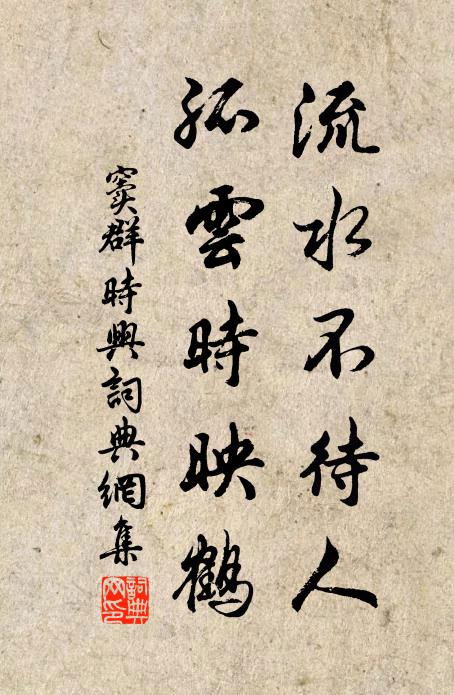 流水不待人
孤雲時映鶴
竇群時興詞典網集
詞典
网印